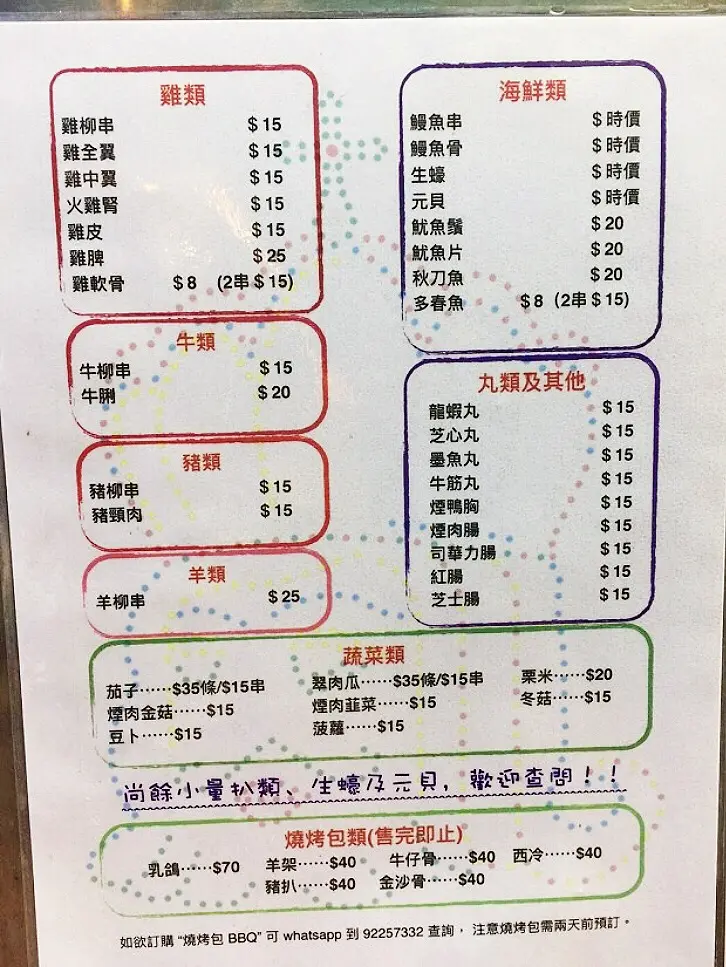 雞類
雞柳串 $15
雞全翼 $15
雞中翼 $15
火雞腎 $15
雞皮 $15
雞脾 $25
雞軟骨 $8 (2串$15)
牛類
牛柳串 $15
牛脷 $20
豬類
豬柳串 $15
豬頸肉 $15
羊類
羊柳串 $25
海鮮類
鰻魚串 $時價
鰻魚骨 $時價
生蠔 $時價
元貝 $時價
魷魚鬚 $20
魷魚片 $20
秋刀魚 $20
多春魚 $8 (2串$15)
丸類及其他
龍蝦丸 $15
芝心丸 $15
墨魚丸 $15
牛筋丸 $15
煙鴨胸 $15
煙肉腸 $15
司華力腸 $15
紅腸 $15
芝士腸 $15
蔬菜類
茄子⋯⋯$35條/$15串 翠肉瓜⋯⋯$35條/$15串 栗米⋯⋯$20
煙肉金菇⋯⋯$15 煙肉韮菜⋯⋯$15 冬菇⋯⋯$15
豆卜⋯⋯$15 菠蘿⋯⋯$15
尚餘小量扒類、生蠔及元貝，歡迎查問！！
燒烤包類(售完即止)
乳鴿⋯⋯$70 羊架⋯⋯$40 牛仔骨⋯⋯$40 西冷⋯⋯$40
豬扒⋯⋯$40 金沙骨⋯⋯$40
如欲訂購 “燒烤包 BBQ” 可 whatsapp 到 92257332 查詢， 注意燒烤包需兩天前預訂。